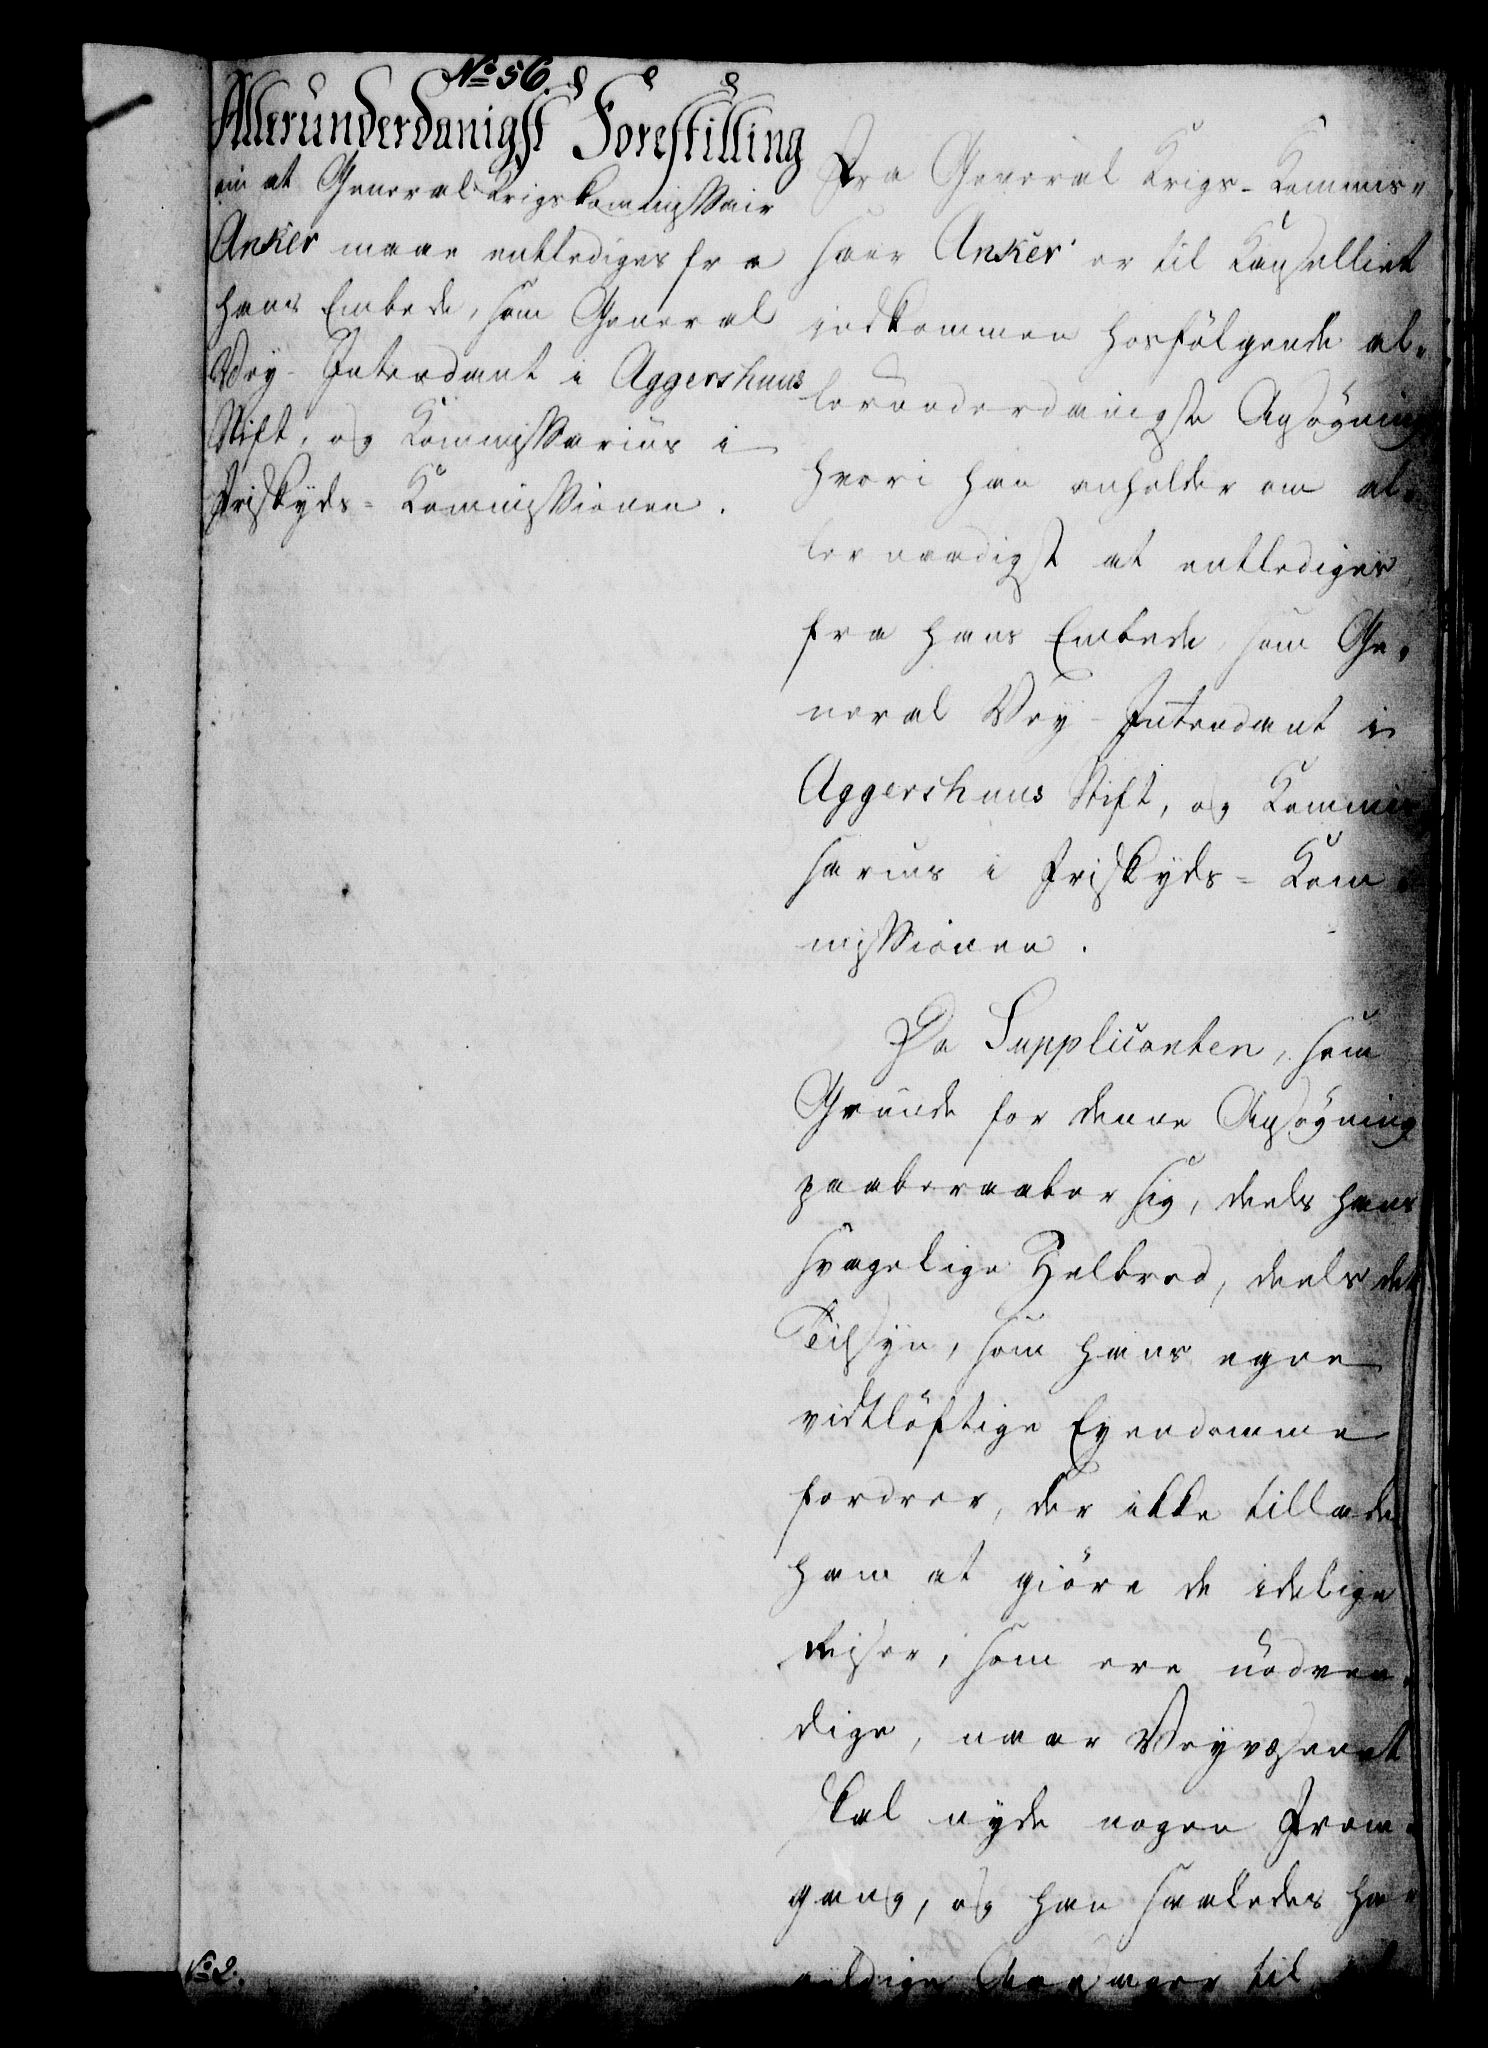 No 56.
Allerunderdanigst Forestilling
om at General-Krigskommissair
Anker maae entlediges fra
hans Embede, som General
Vey-Intendant i Aggershuus
Stift, og Kommissarius i
Friskyds-Kommissionen.
Fra General Krigs-Kommis-
sair Anker er til Kancelliet
indkommen hosfölgende al-
lerunderdanigste Ansögning
hvori han anholder om al-
lernaadigst at entlediges
fra hans Embede, som Ge-
neral Vey-Intendant i
Aggershuus Stift, og Kommis-
sarius i Friskyds-Kom-
missionen.
Da Supplicanten, som
Grunde for denne Ansögning
paaberaaber sig, deels hans
svagelige Helbred, deels det
Tilsyn, som hans egne
vidtlöftige Eyendomme
fordrer, der ikke tillade
ham at giöre de idelige
Reiser, som ere nödven-
dige, naar Veyvæsenet
skal nyde nogen Frem-
gang, og han saaledes har
gyldige Aarsager til
No 2.